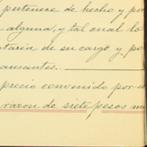 pertenece de hecho y po
alguna, y tal cual lo
taria de su cargo y po
precio convenido por
razon de siete pesos m